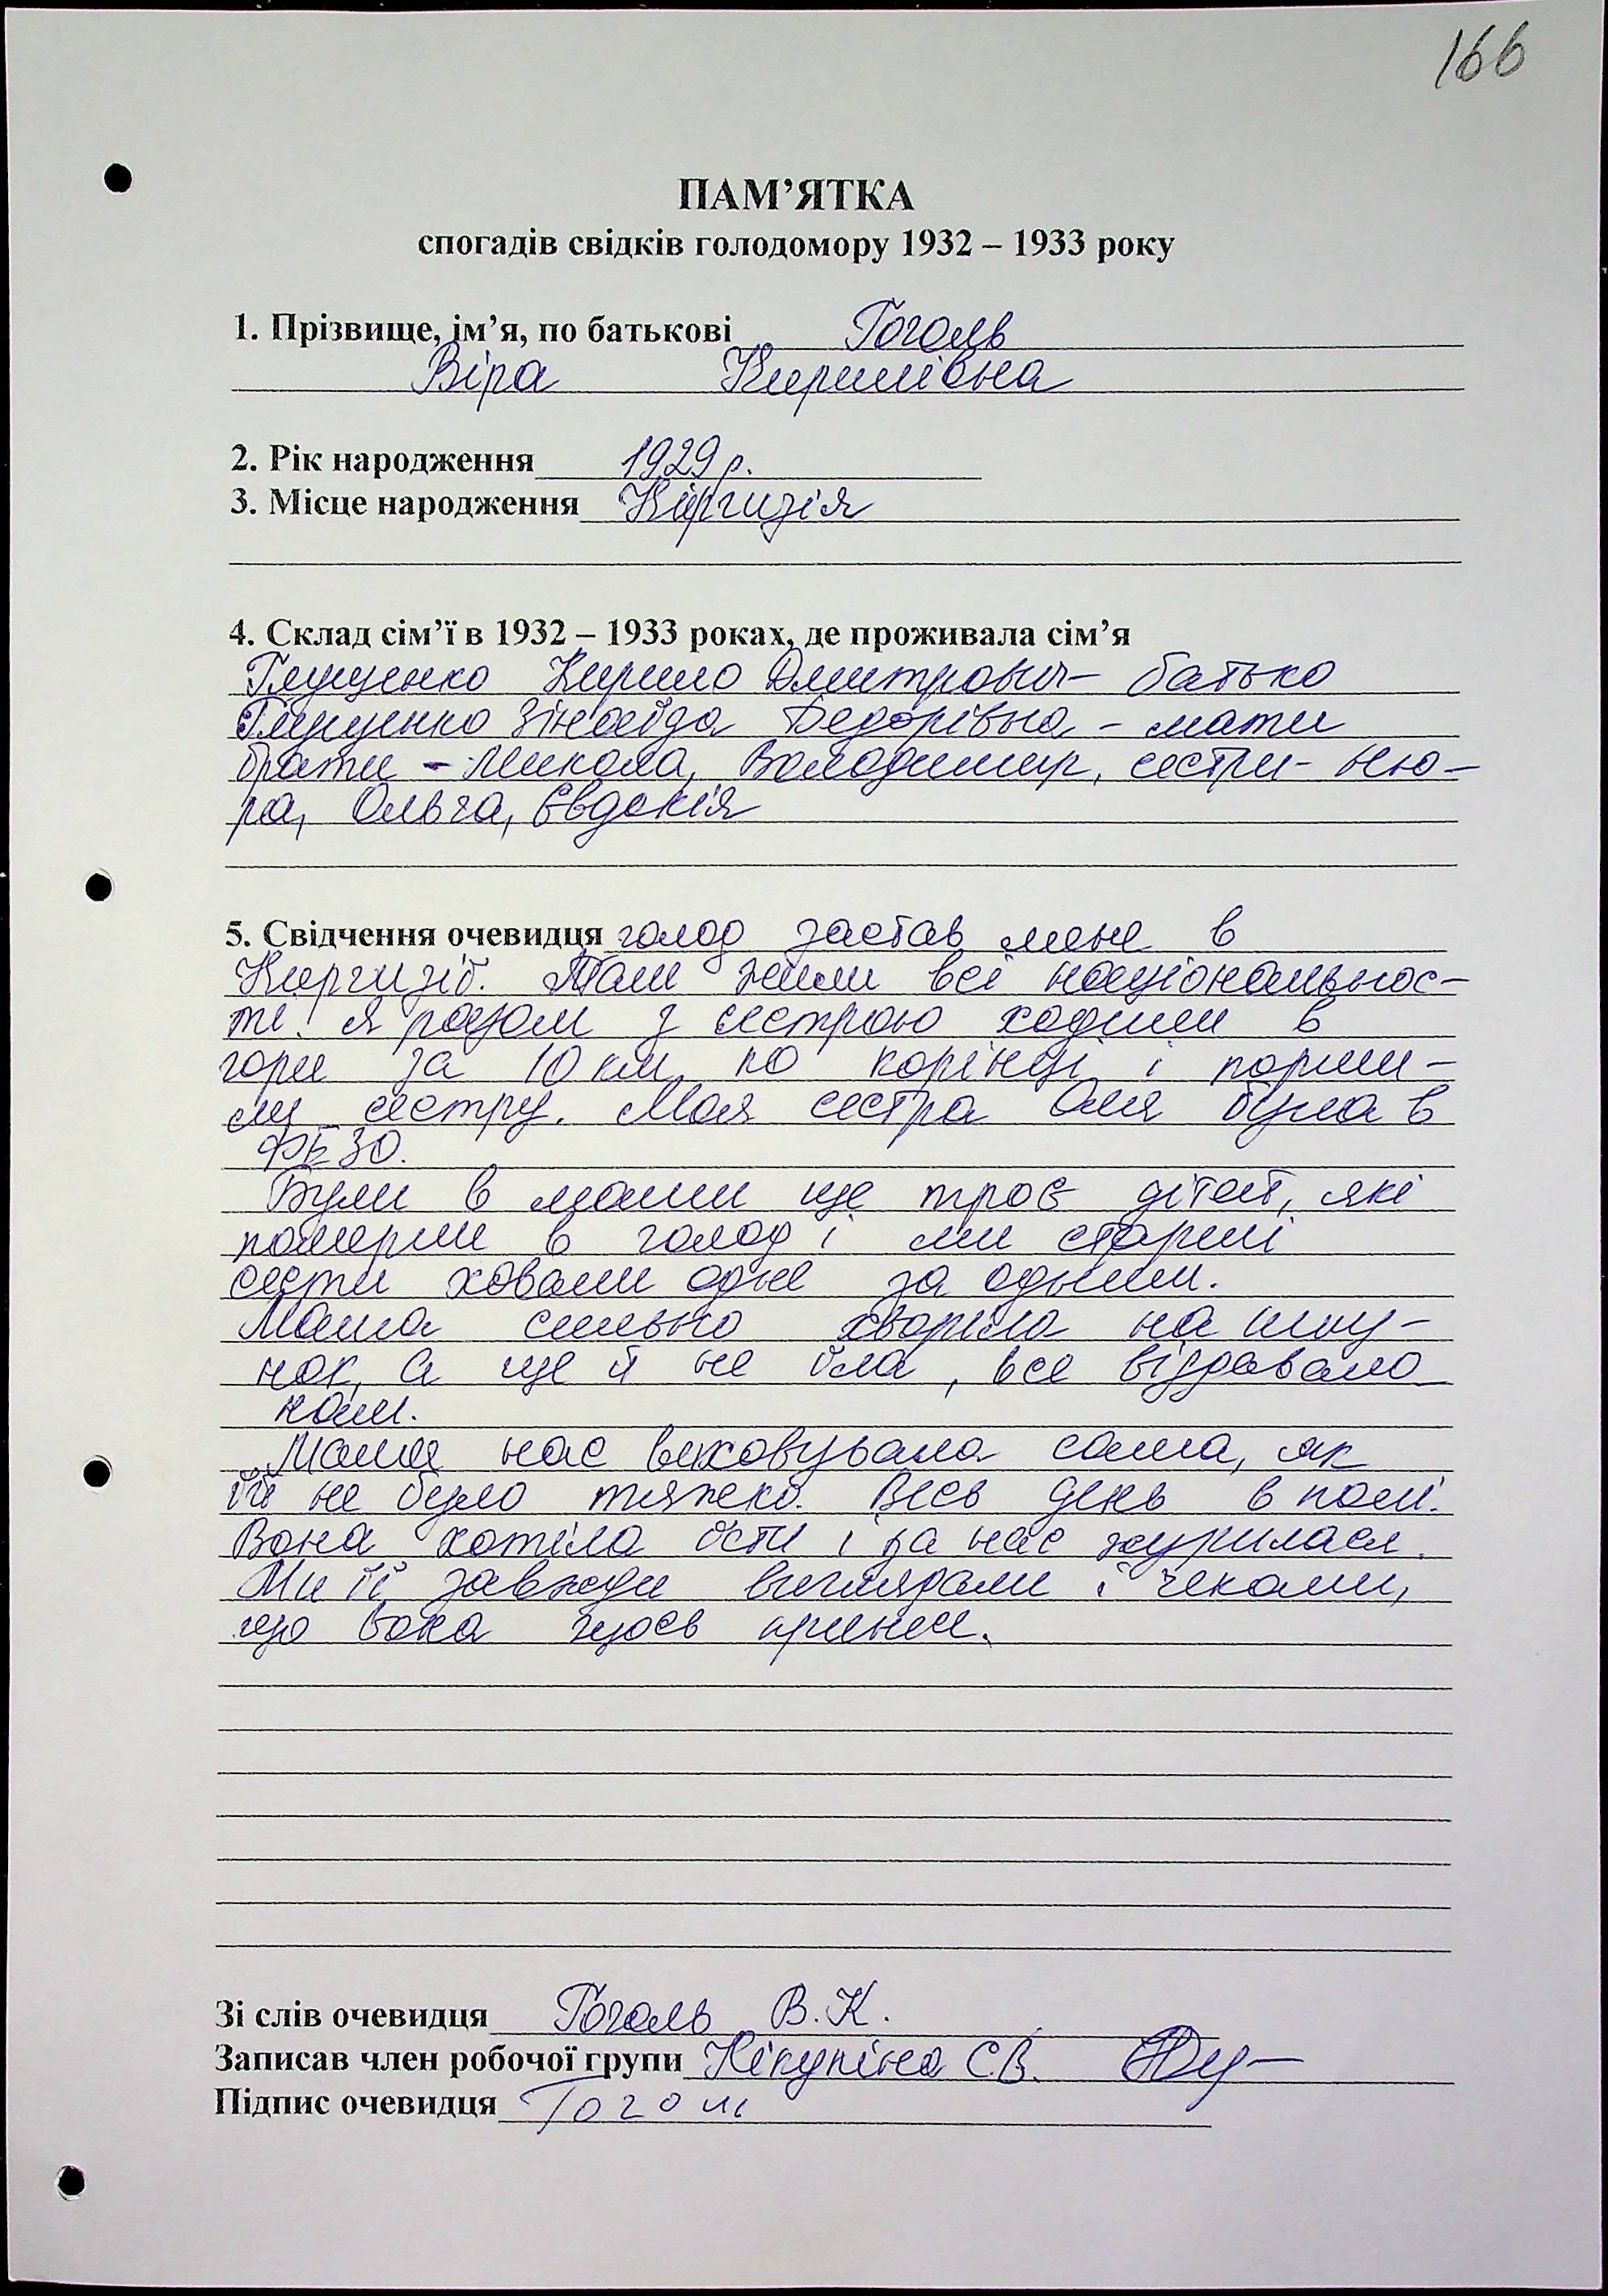 166
ПАМ’ЯТКА
спогадів свідків голодомору 1932 – 1933 року
1. Прізвище, ім’я, по батькові Гоголь
Віра Кирилівна
2. Рік народження 1929 р.
3. Місце народження Кіргизія
4. Склад сім’ї в 1932 – 1933 роках, де проживала сім’я
Глущенко Кирило Дмитрович – батько
Глущенко Зінаїда Федорівна – мати
брати – Микола, Володимир, сестри – Ню-
ра, Ольга, Євдокія
5. Свідчення очевидця голод застав мене в
Киргизії. Там жили всі національнос-
ті. Я разом з сестрою ходили в
гори за 10 км по корінці і
сестру. Моя сестра Оля була в
ФЕЗО.
Були в мами ще троє дітей, які
померли в голод і ми старші
сестри ховали одне за одним.
Мама сильно хворіла на шлу-
нок, а ще й не їла, все віддавала
нам.
Мама нас виховувала сама, як
їй не було тяжко. Весь день в полі.
Вона хотіла їсти і за нас журилася.
Ми її завжди виглядали і чекали,
що вона щось принесе.
Зі слів очевидця Гоголь В.К.
Записав член робочої групи С.В.
Підпис очевидця Гоголь